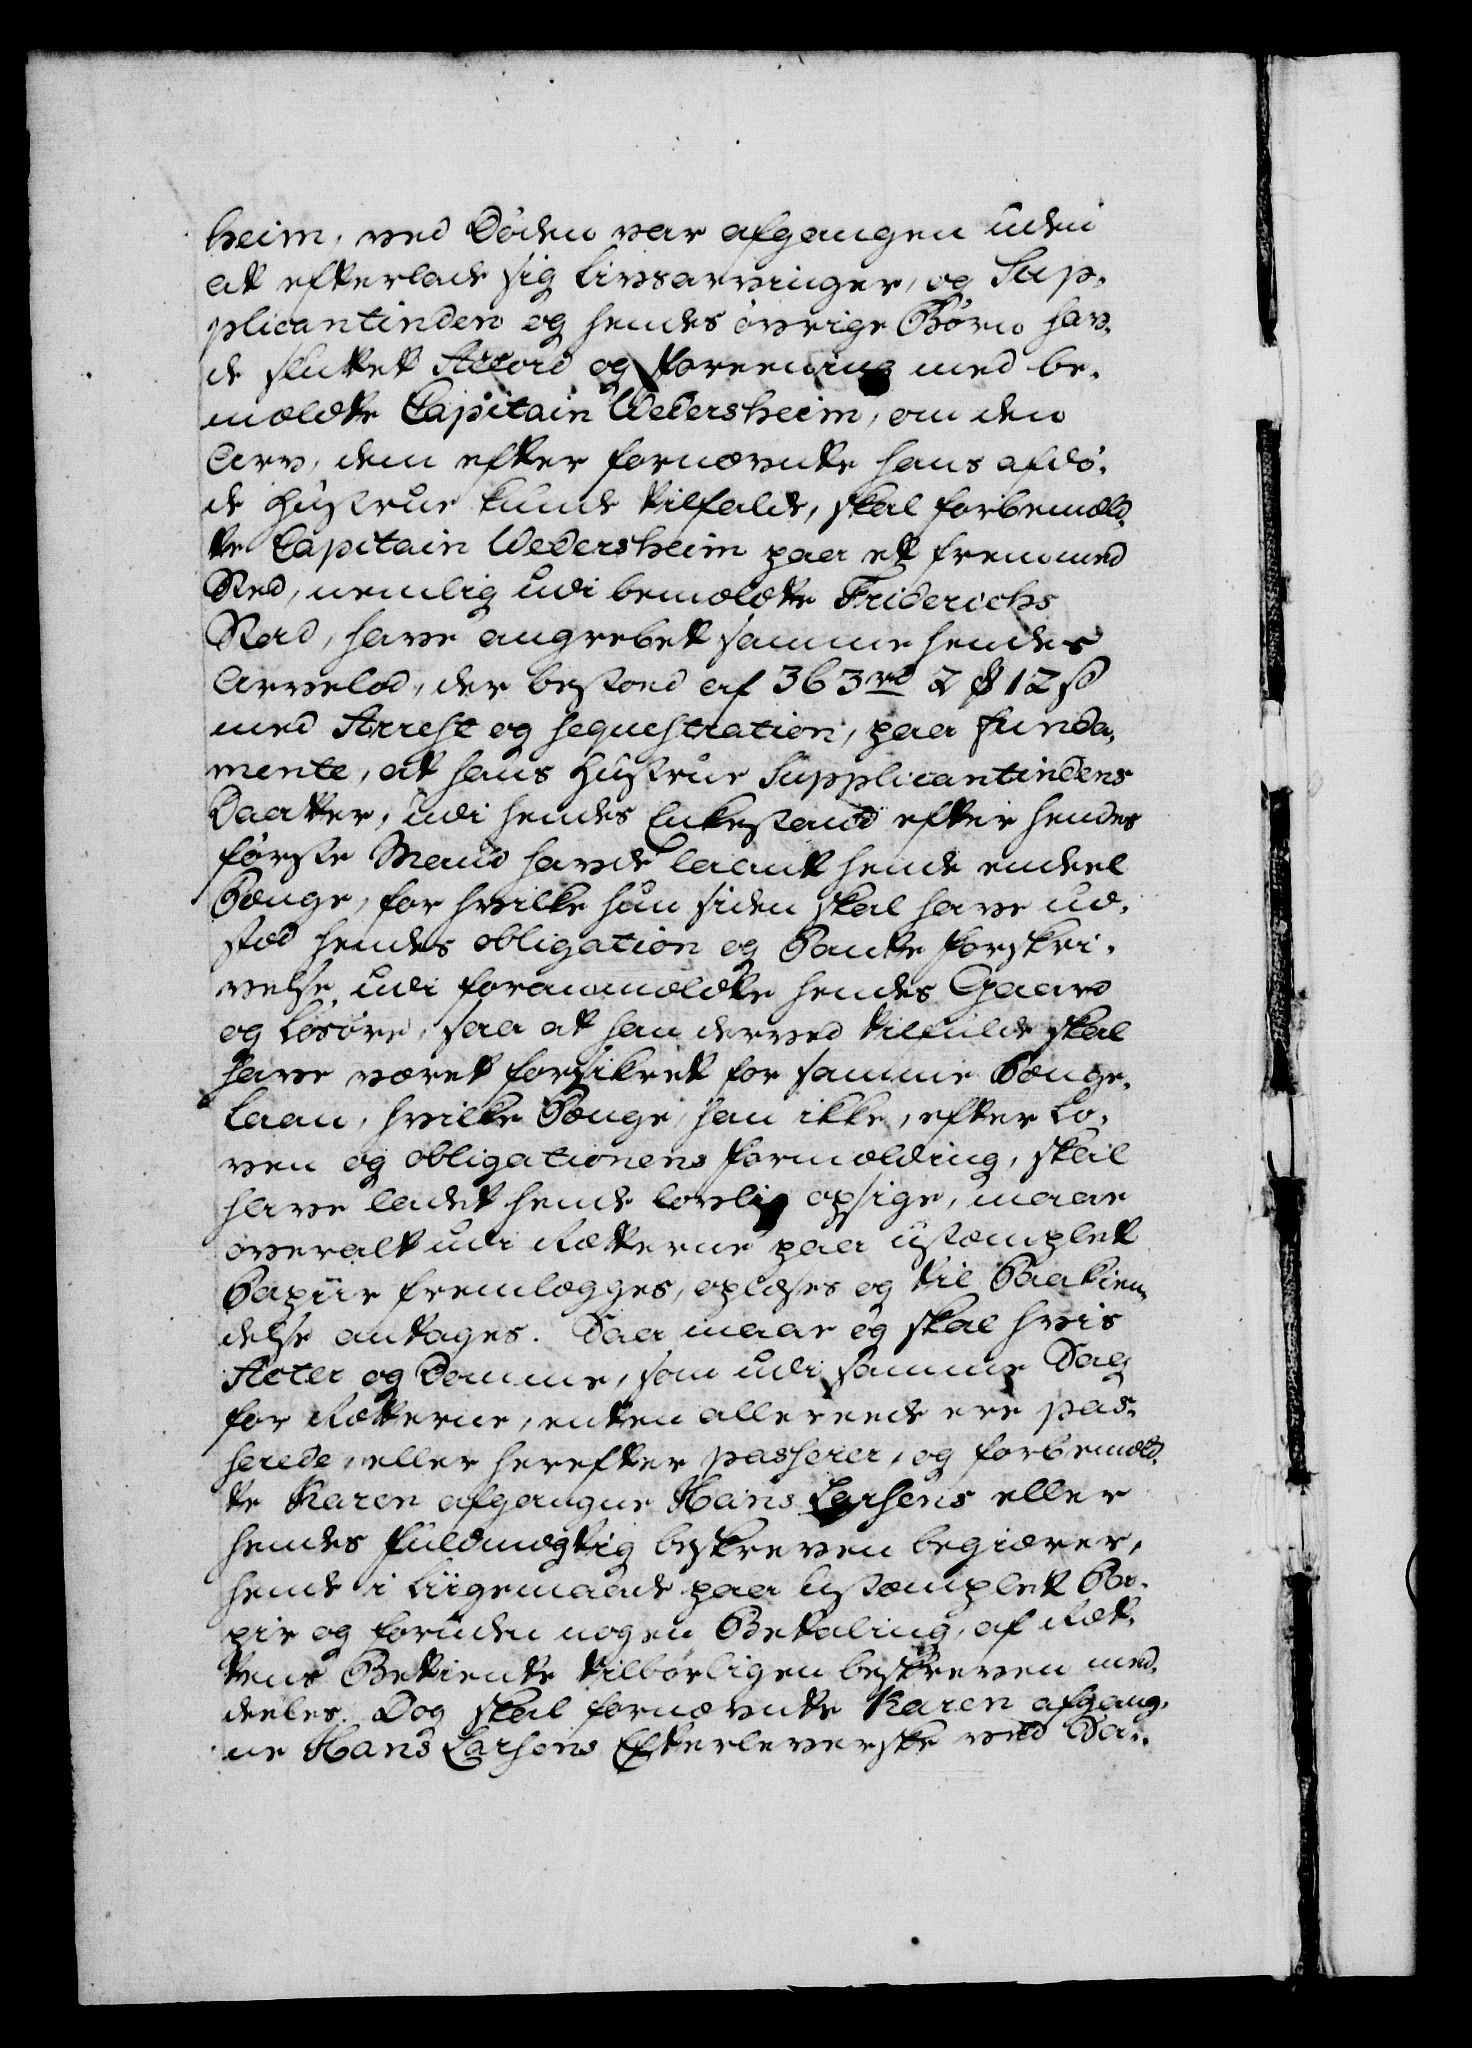 heim, ved Døden var afgangen uden
at efterlade sig Livsarvinger, og Sup-
plicantinden og hendes øvrige Børn hav-
de sluttet Accord og Foreening med be-
mældte Capitain Wedersheim, om den
Arv, dem efter fornævnte hans afdø-
de Hustrue kunde tilfalde, skal forbemæld-
te Capitain Wedersheim paa et fremmed
Sted, nemlig udi bemældte Friderichs
Stad, have angrebet samme hendes
Arvelod, der bestoed af 363 rd 2 ₰ 12 s
med Arrest og Sequestration, paa Funda-
mente, at hans Hustrue Supplicantindens
Daatter, udi hendes Enkestand efter hendes
første Mand havde laant hende endeel
Penge, for hvilke hun siden skal have ud-
stæd hendes obligation og Pante forskri-
velse udi foranmældte hendes Gaard
og Løsøre, saa at han derved tilfulde skal
have været forsikret for samme Penge-
Laan, hvilke Penge, han ikke, efter Lo-
ven og obligationens formælding, skal
have ladet hende lovlig opsige, maae
overalt udi Rætterne paa ustæmplet
Papiir fremlægges, oplæses og til Paakien-
delse antages. Saa maae og skal hvis
Acter og Domme, som udi samme Sag
for Rætterne, enten allereede ere pas-
serede, eller herefter passerer, og forbemæld-
te Karen afgangne Hans Larsens eller
hendes fuldmægtig beskreven begiærer,
hende i liigemaade paa Ustæmplet Pa-
pir og foruden nogen Betaling, af Ræt-
tens Betiente tilbørligen beskreven med-
deeles. Dog skal fornævnte Karen afgang-
ne Hans Larsens Efterleverske ved Sa-